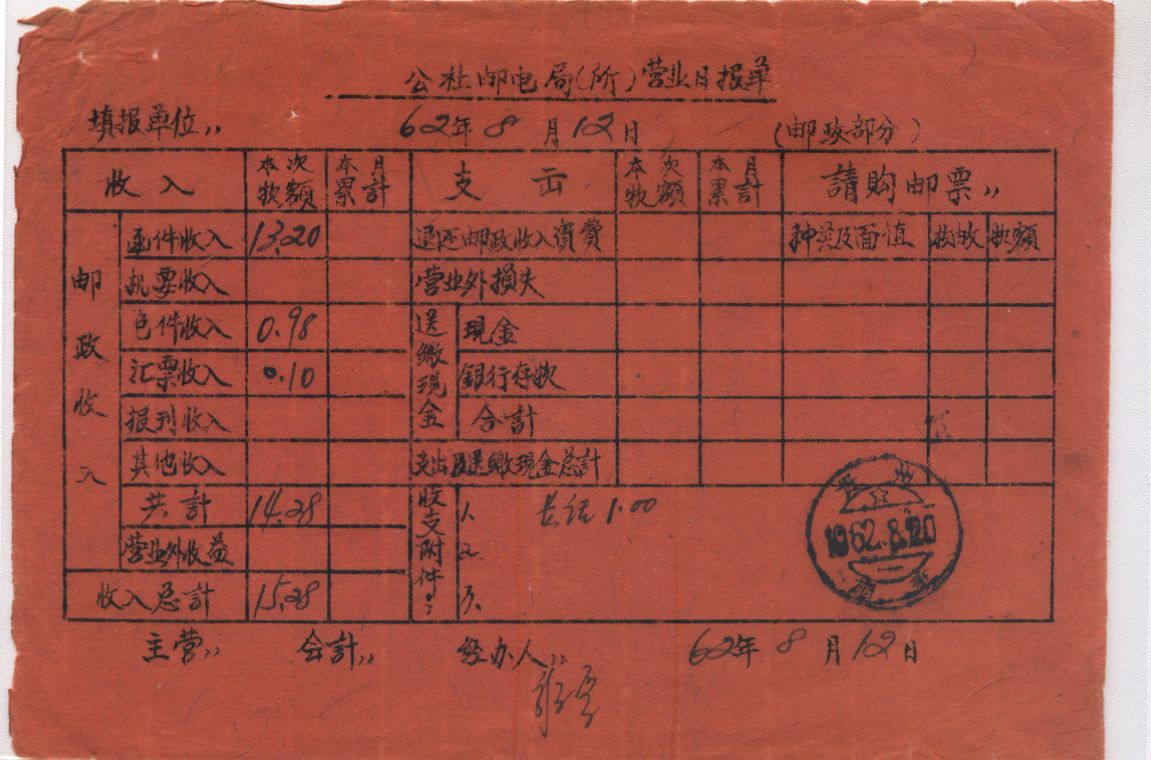 公社邮电局(所)营业日报单
填报单位,, 62年8月12日 (邮政部分)
收入 本次款额 本月累計 支出 本次款额 本月累計 請购邮票,,
邮政收入
函件收入 13.20 退还邮政收入資費 种类及面值 枚数 款額
机要收入 营业外損失
包件收入 0.98 送缴現金 現金
汇票收入 0.10 銀行存款
报刊收入 合計
其他收入 支出及送缴現金总計
共計 14.28 收支附件: 1. 长话 1.00
营业外收益 2.
收入总計 15.28 3.
1962.8.12
主营,, 会計,, 经办人,, 62年8月12日